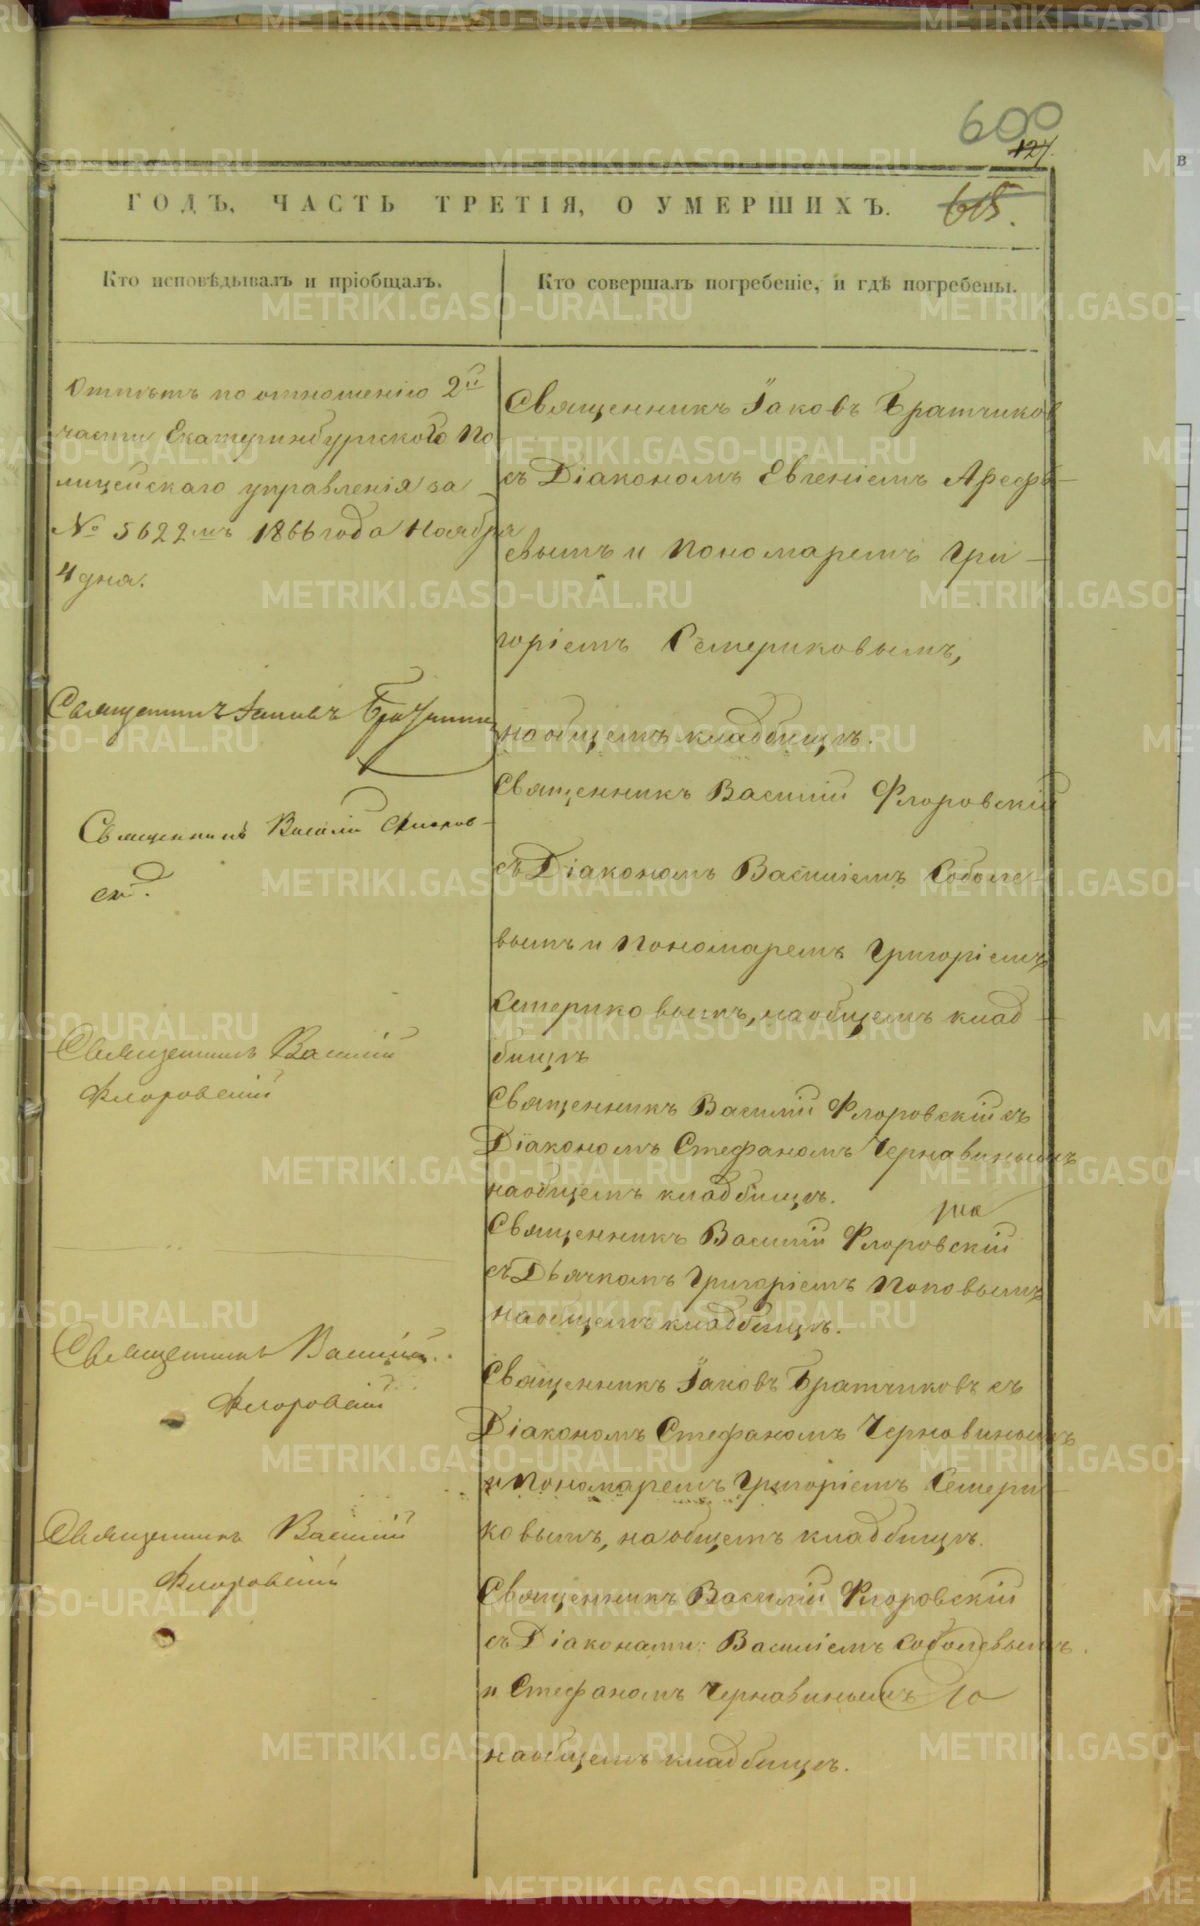 600
127.
615.
ГОДЪ, ЧАСТЬ ТРЕТІЯ, О УМЕРШИХЪ.
Кто исповѣдывалъ и пріобщалъ.
Кто совершалъ погребеніе, и гдѣ погребены.
Отпѣтъ по отношенію 2й
части Екатеринбургскаго По
лицейскаго управленія за
№ 5622мъ 1866 года Ноября
4 дня.
Священникъ Іаковъ Братчиковъ
Священникъ Василій Флоров-
скій.
Священникъ Василій
Флоровскій
Священникъ Василій
Флоровскій
Священникъ Василій
Флоровскій
Священникъ Іаковъ Братчиков
съ Діакономъ Евгеніемъ Арефь-
евымъ и Пономаремъ Гри-
горіемъ Семериковымъ,
на общемъ кладбищѣ.
Священникъ Василій Флоровскій
съ Діакономъ Василіемъ Соболе-
вымъ и Пономаремъ Григоріемъ
Семериковымъ, на общемъ клад-
бищѣ
Священникъ Василій Флоровскій съ
Діакономъ Стефаномъ Чернавинымъ
на общемъ кладбищѣ.
Священникъ Василій Флоровскій
съ Дьячкомъ Григоріемъ Поповымъ
на общемъ кладбищѣ.
Священникъ Іаковъ Братчиковъ съ
Діакономъ Стефаномъ Чернавинымъ
и Пономаремъ Григоріемъ Семери-
ковымъ, на общемъ кладбищѣ.
Священникъ Василій Флоровскій
съ Діаконами: Василіемъ Соболевымъ
и Стефаномъ Чернавинымъ
на общемъ кладбищѣ.
METRIKI.GASO-URAL.RU